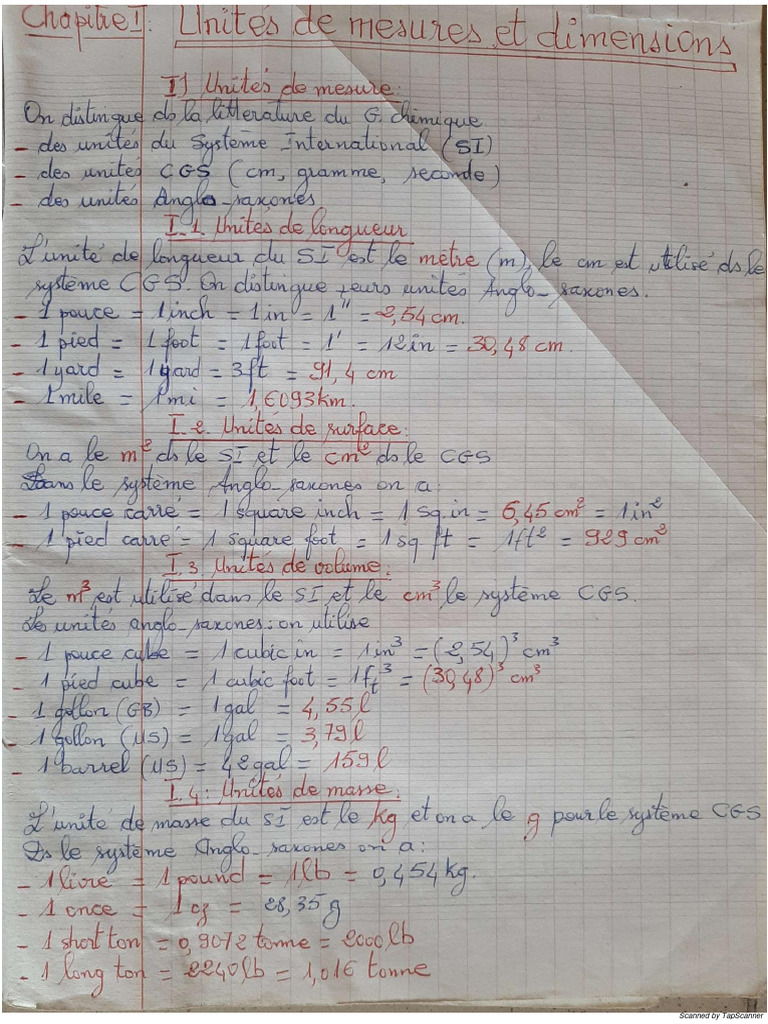 Chapitre I: Unités de mesures et dimensions
I) Unités de mesure:
On distingue ds la littérature du G. chimique
- des unités du Système International (SI)
- des unités CGS (cm, gramme, seconde)
- des unités Anglo-saxones
I.1. Unités de longueur
L'unité de longueur du SI est le mètre (m), le cm est utilisé ds le
système CGS. On distingue +eurs unités Anglo-saxones.
- 1 pouce = 1 inch = 1 in = 1" = 2,54 cm.
- 1 pied = 1 foot = 1 foot = 1' = 12 in = 30,48 cm.
- 1 yard = 1 yard = 3 ft = 91,4 cm
- 1 mile = 1 mi = 1,6093 km.
I.2. Unités de surface:
On a le m² ds le SI et le cm² ds le CGS
Dans le système Anglo-saxones on a:
- 1 pouce carré = 1 square inch = 1 sq.in = 6,45 cm² = 1 in²
- 1 pied carré = 1 square foot = 1 sq ft = 1 ft² = 929 cm²
I.3. Unités de volume:
Le m³ est utilisé dans le SI et le cm³ le système CGS.
Les unités anglo-saxones: on utilise
- 1 pouce cube = 1 cubic in = 1 in³ = (2,54)³ cm³
- 1 pied cube = 1 cubic foot = 1 ft³ = (30,48)³ cm³
- 1 gollon (GB) = 1 gal = 4,55 l
- 1 gollon (US) = 1 gal = 3,79 l
- 1 barrel (US) = 42 gal = 159 l
I.4: Unités de masse:
L'unité de masse du SI est le kg et on a le g pour le système CGS
Ds le système Anglo-saxones on a:
- 1 livre = 1 pound = 1 lb = 0,454 kg.
- 1 once = 1 oz = 28,35 g
- 1 short ton = 0,9072 tonne = 2000 lb
- 1 long ton = 2240 lb = 1,016 tonne
Scanned by TapScanner